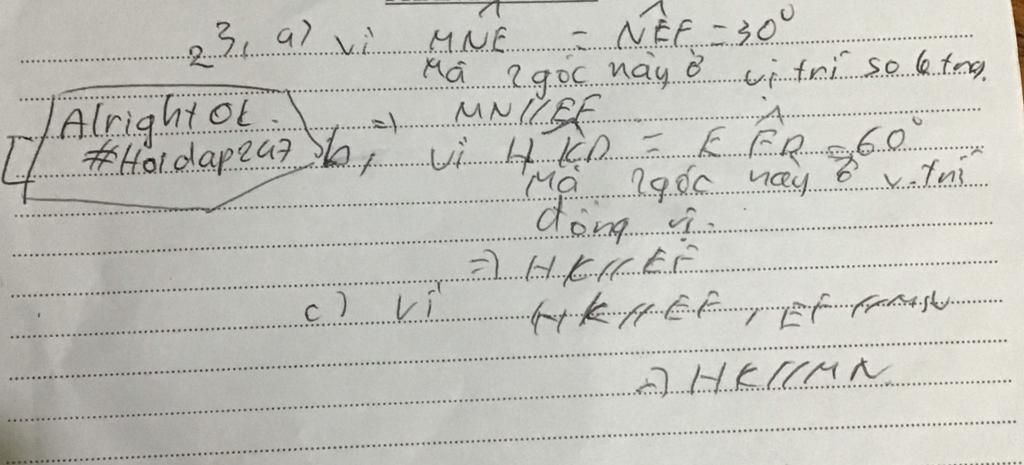 23, a) Vì MNÊ = NÊF = 30°
Mà 2 góc này ở vị trí so le tng.
=> MN//EF
Alright Ot.
#Hoidap247
b, Vì HK̂D = EF̂R = 60°
Mà 2 góc này ở v.trí
đồng vị.
=> HK//EF
c) Vì HK//EF, EF//MN
=> HK//MN